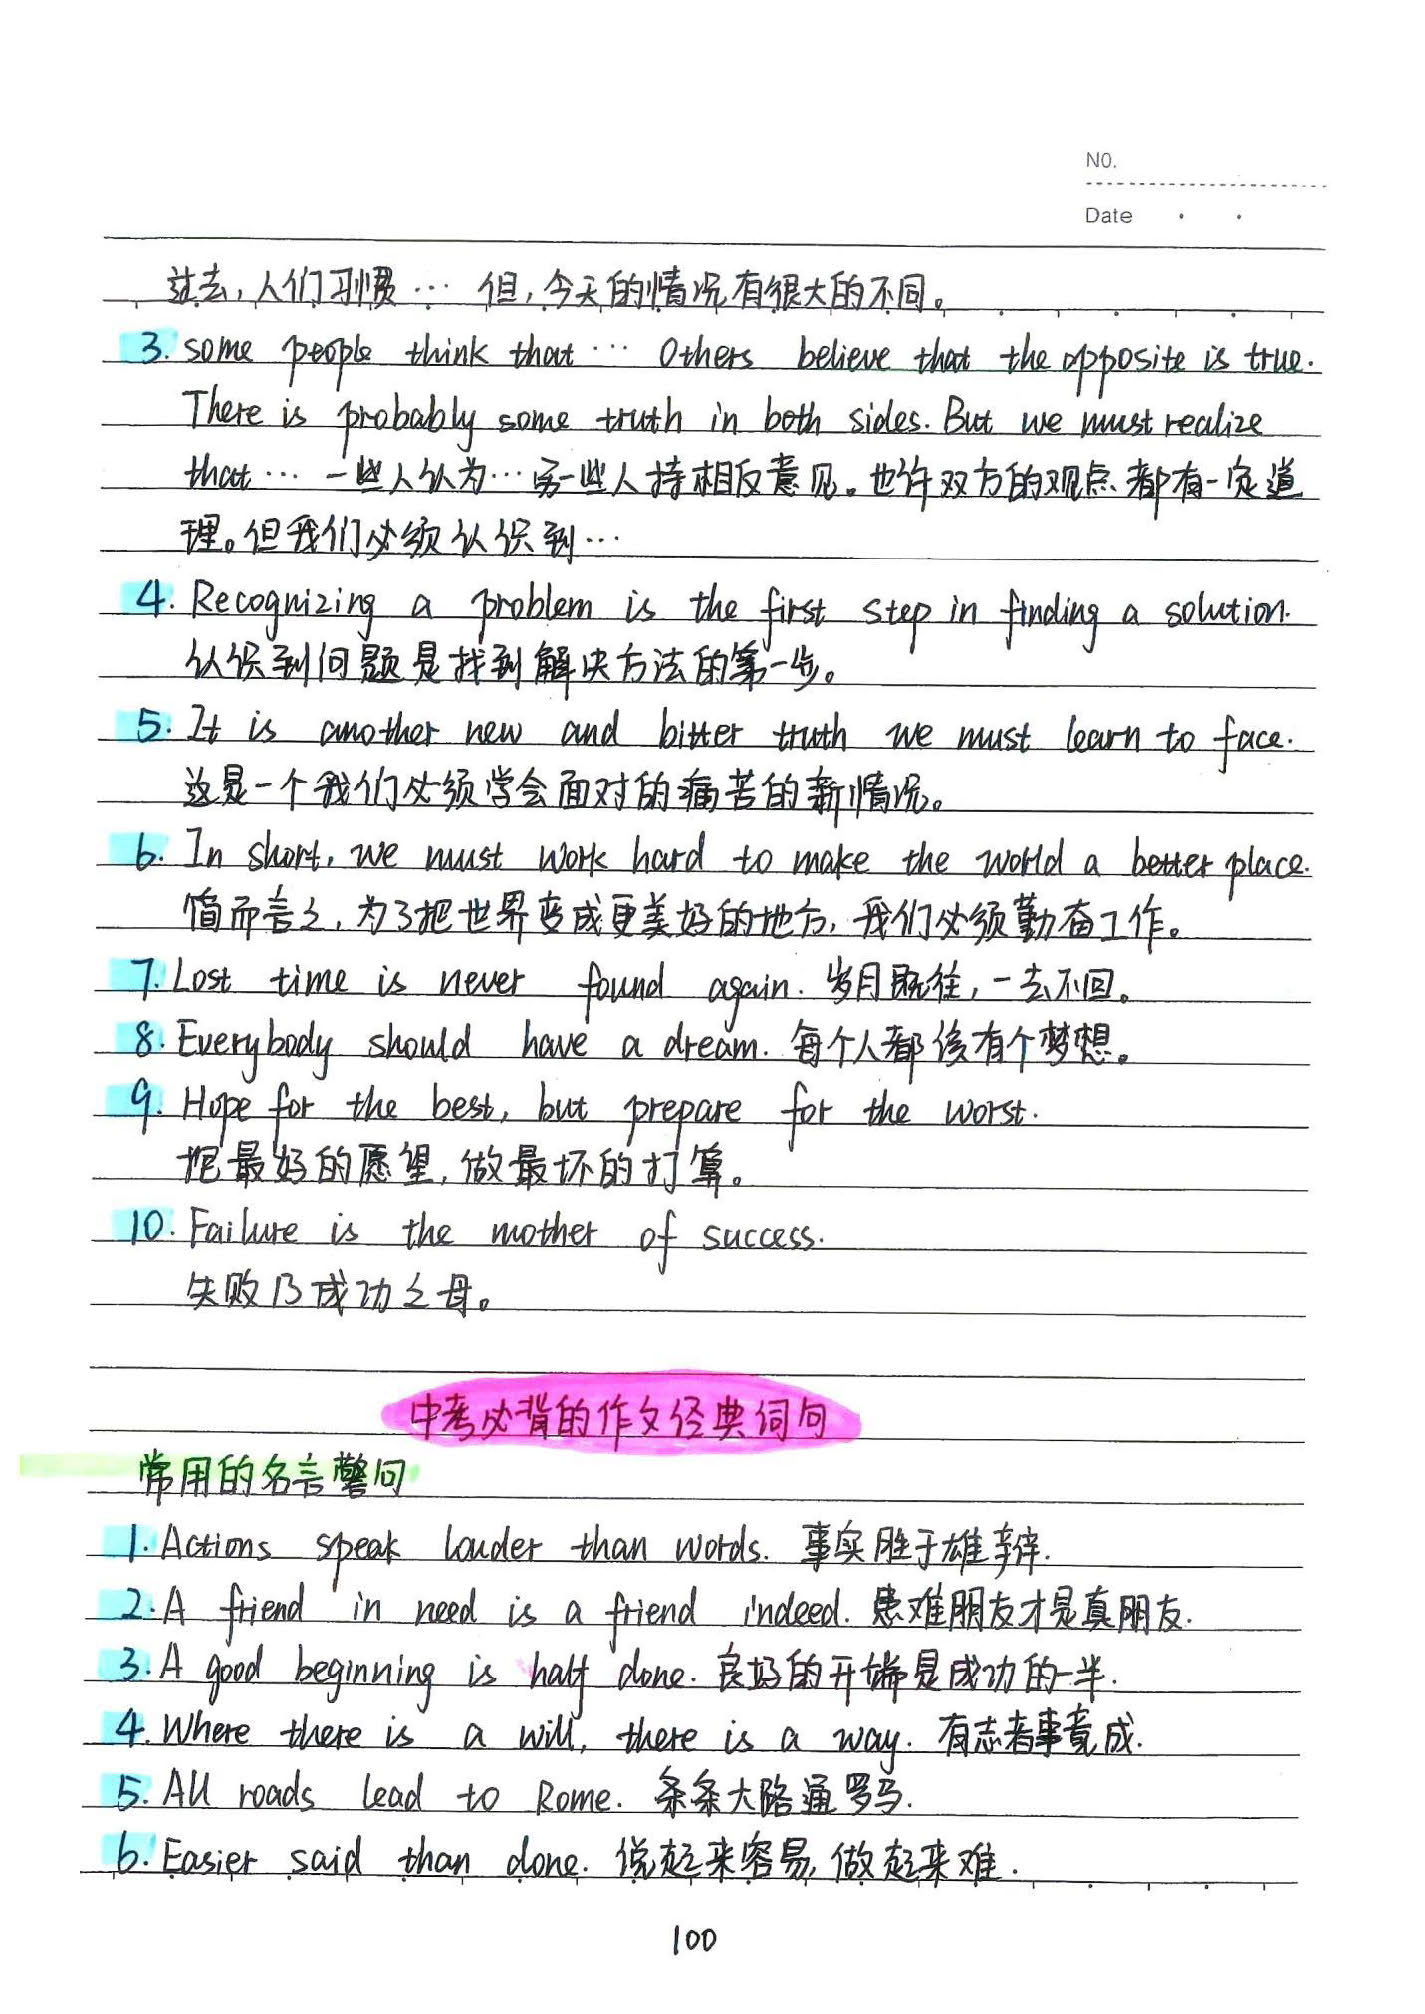 NO.
Date
过去，人们习惯… 但，今天的情况有很大的不同。
3. some people think that… Others believe that the opposite is true.
There is probably some truth in both sides. But we must realize
that… 一些人认为…另一些人持相反意见。也许双方的观点都有一定道
理。但我们必须认识到…
4. Recognizing a problem is the first step in finding a solution.
认识到问题是找到解决方法的第一步。
5. It is another new and bitter truth we must learn to face.
这是一个我们必须学会面对的痛苦的新情况。
6. In short, we must work hard to make the world a better place.
简而言之，为了把世界变成更美好的地方，我们必须勤奋工作。
7. Lost time is never found again. 岁月既往，一去不回。
8. Everybody should have a dream. 每个人都该有个梦想。
9. Hope for the best, but prepare for the worst.
抱最好的愿望，做最坏的打算。
10. Failure is the mother of success.
失败乃成功之母。
中考必背的作文经典词句
常用的名言警句
1. Actions speak louder than words. 事实胜于雄辩.
2. A friend in need is a friend indeed. 患难朋友才是真朋友.
3. A good beginning is half done. 良好的开端是成功的一半.
4. Where there is a will, there is a way. 有志者事竟成.
5. All roads lead to Rome. 条条大路通罗马.
6. Easier said than done. 说起来容易,做起来难.
100